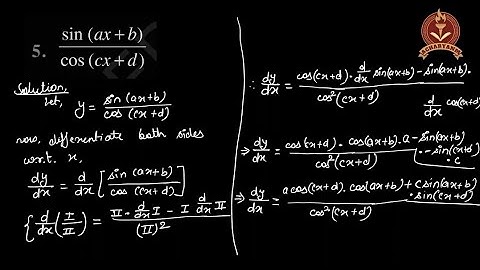 5. sin (ax + b) / cos (cx + d)
Solution,
Let, y = sin (ax+b) / cos (cx+d)
now, differentiate both sides
w.r.t. x,
dy/dx = d/dx [ sin (ax+b) / cos (cx+d) ]
{ d/dx (I/II) = II · d/dx I − I d/dx II / (II)²
∴ dy/dx = cos(cx+d) · d/dx sin(ax+b) − sin(ax+b) · d/dx cos(cx+d) / cos²(cx+d)
⇒ dy/dx = cos(cx+d) · cos(ax+b) · a − sin(ax+b) · − sin(cx+d) · c / cos²(cx+d)
⇒ dy/dx = a cos(cx+d) · cos(ax+b) + c sin(ax+b) · sin(cx+d) / cos²(cx+d)
ACHARYANS